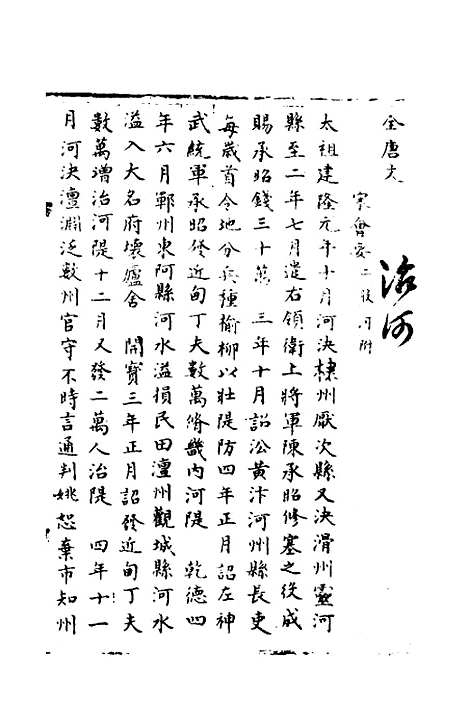 全唐文
宋會要 二股河附
治河
太祖建隆元年十月河決棣州厭次縣又決滑州靈河
縣至二年七月遣右領衛上將軍陳承昭修塞之役成
賜承昭錢三十萬 三年十月詔沿黃汴河州縣長吏
每歲首令地分兵種榆柳以壯隄防四年正月詔左神
武統軍承昭發近甸丁夫數萬脩畿內河隄 乾德四
年六月鄆州東阿縣河水溢損民田澶州觀城縣河水
溢入大名府壞廬舍 開寶三年正月詔發近甸丁夫
數萬增治河隄十二月又發二萬人治隄 四年十一
月河決澶淵泛數州官守不時言通判姚恕棄市知州